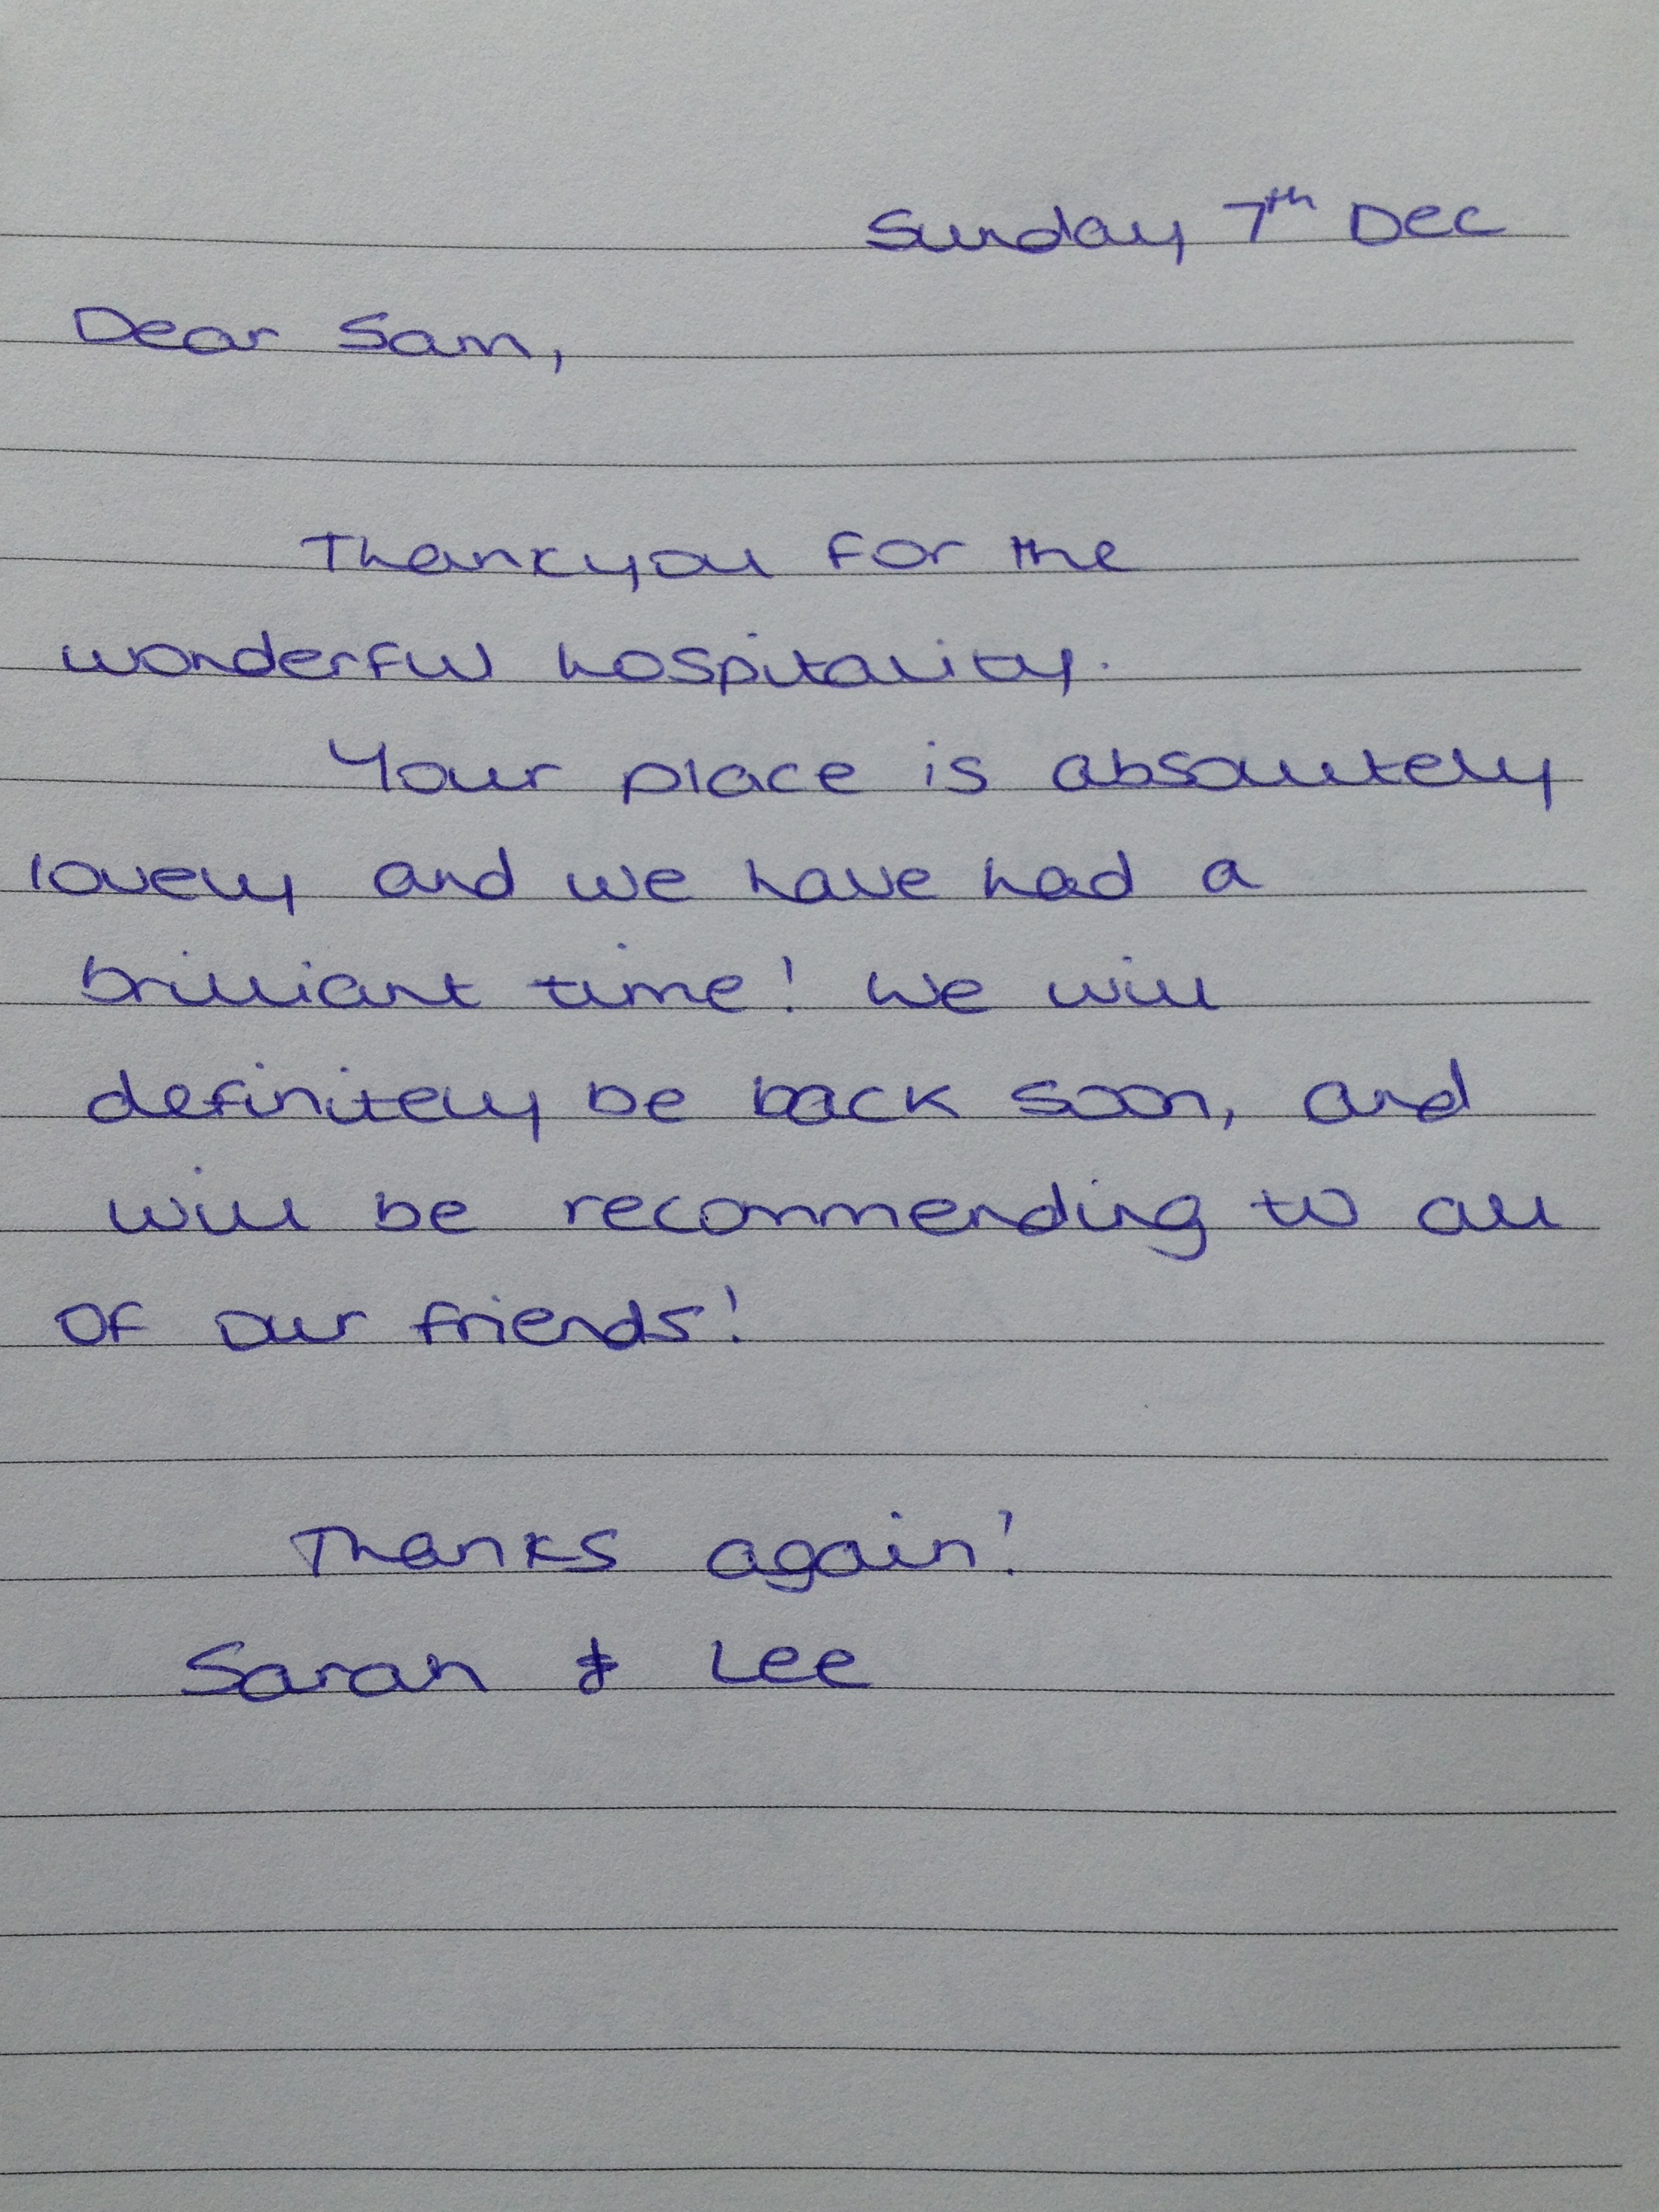 Sunday 7th Dec
Dear Sam,
Thankyou for the
wonderful hospitality.
Your place is absolutely
lovely and we have had a
brilliant time! We will
definitely be back soon, and
will be recommending to all
of our friends!
Thanks again!
Sarah & Lee